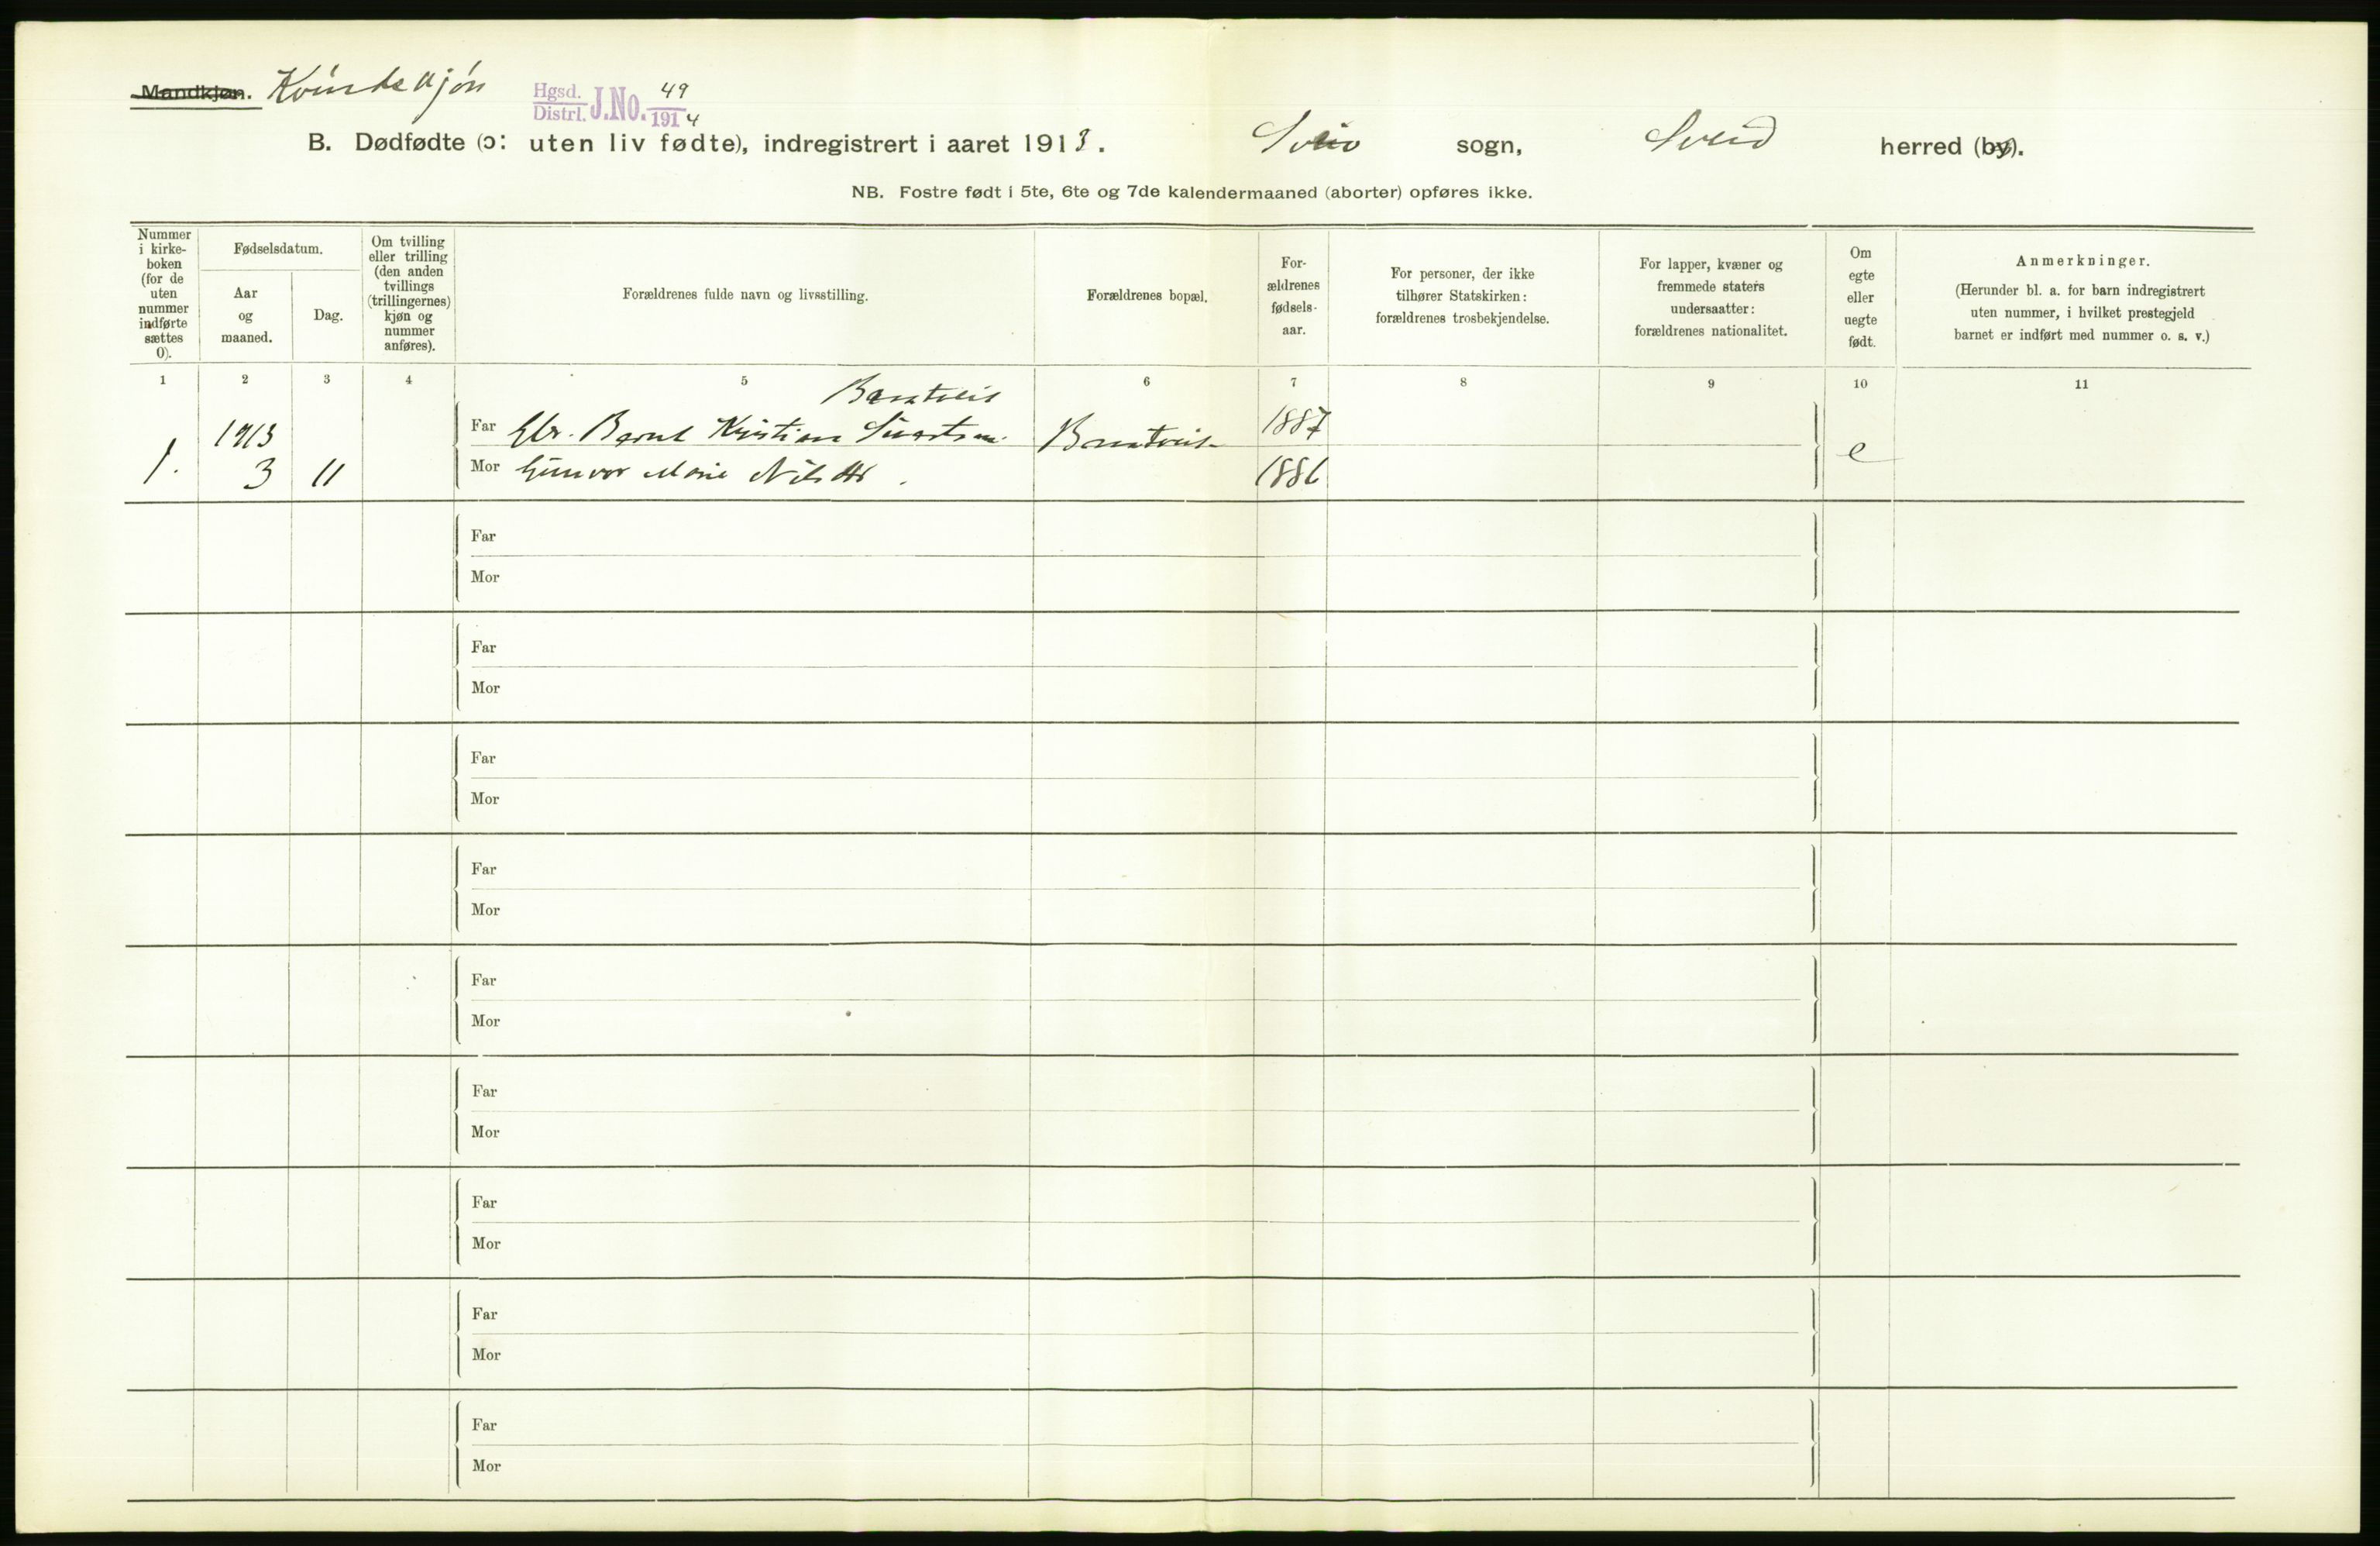 Mandkjøn. Kvindekjøn
Hgsd. Distrl. J.No. 49 1914
B. Dødfødte (ɔ: uten liv fødte), indregistrert i aaret 1913. Sveio sogn, Sveio herred (by).
NB. Fostre født i 5te, 6te og 7de kalendermaaned (aborter) opføres ikke.
Nummer
i kirke-
boken
(for de
uten
nummer
indførte
sættes
0).
Fødselsdatum.
Aar
og
maaned.
Dag.
Om tvilling
eller trilling
(den anden
tvillings
(trillingernes)
kjøn og
nummer
anføres).
Forældrenes fulde navn og livsstilling.
Forældrenes bopæl.
For-
ældrenes
fødsels-
aar.
For personer, der ikke
tilhører Statskirken:
forældrenes trosbekjendelse.
For lapper, kvæner og
fremmede staters
undersaatter:
forældrenes nationalitet.
Om
egte
eller
uegte
født.
Anmerkninger.
(Herunder bl. a. for barn indregistrert
uten nummer, i hvilket prestegjeld
barnet er indført med nummer o. s. v.)
1 2 3 4 5 6 7 8 9 10 11
1913
Far Gbr. Bernt Kristian 1887
1. 3 11 e
Mor Gunvor Marie Nilsdtr. 1886
Far
Mor
Far
Mor
Far
Mor
Far
Mor
Far
Mor
Far
Mor
Far
Mor
Far
Mor
Far
Mor